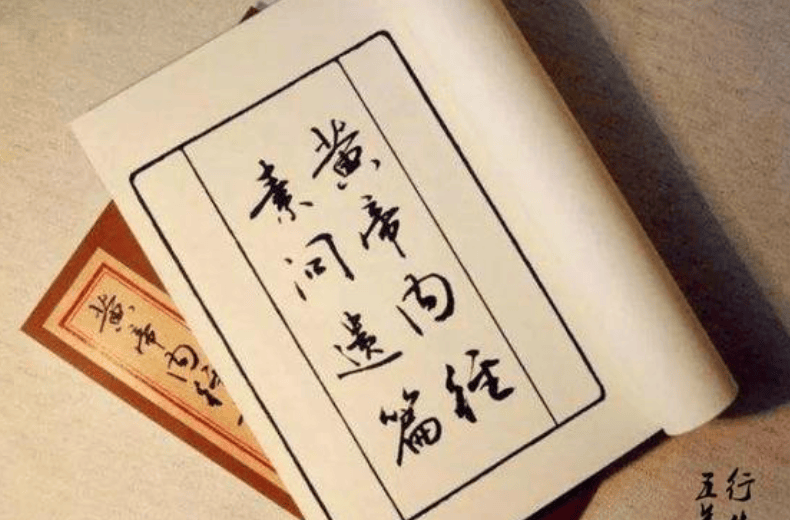 黄帝内经
素问遗篇
黄帝内经
行
五